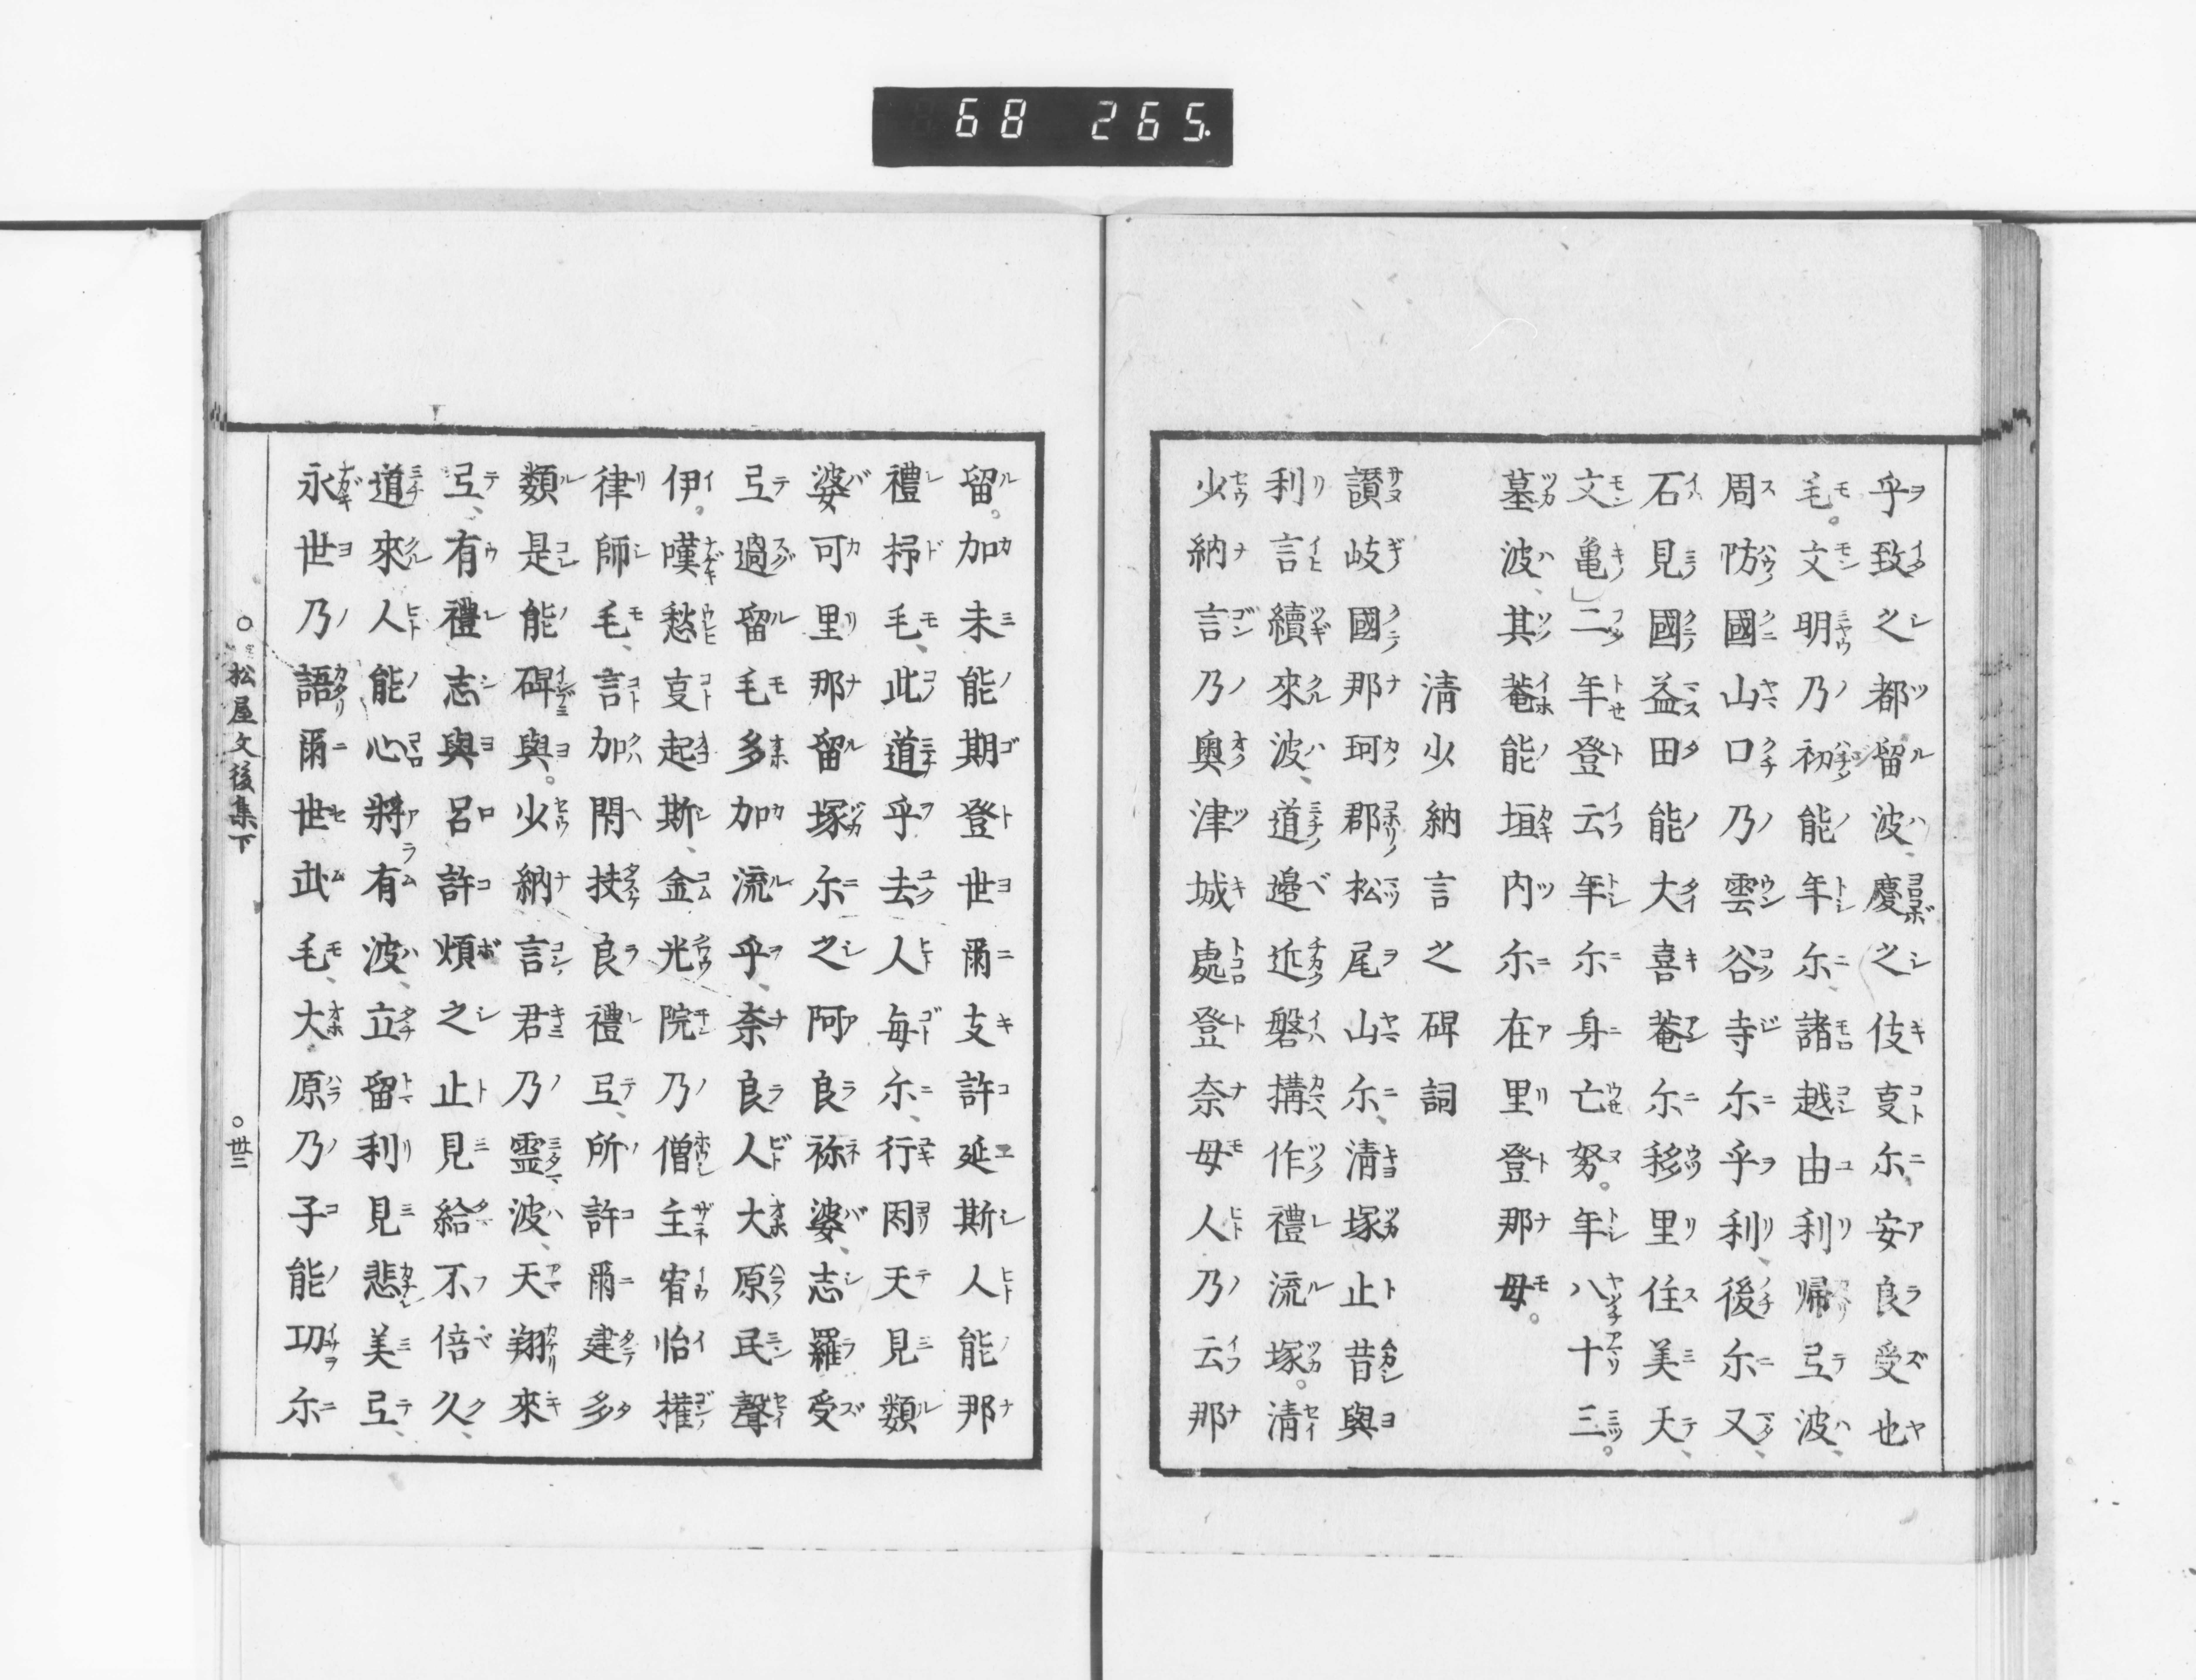 68 265.
乎致之都留波、慶之伎㕝尓、安良受也
毛。文明乃初能年尓、諸越由利帰弖波、
周防國山口乃雲谷寺尓乎利、後尓又、
石見國益田能大喜菴尓移里住美天、
文亀二年登云年尓身亡努。年八十三。
墓波、其菴能垣内尓在里登那母。
清少納言之碑詞
讃岐國那珂郡松尾山尓、清塚止昔與
利言續來波、道邊近磐搆作禮流塚。清
少納言乃奥津城處登奈母人乃云那
留。加未能期登世爾支許延斯人能那
禮抒毛、此道乎去人毎尓、行囙天見類
婆可里那留塚尓之阿良祢婆、志羅受
弖過留毛多加流乎、奈良人大原民聲
伊。嘆愁㕝起斯、金光院乃僧主宥怡権
律師毛、言加閇扶良禮弖、所許爾建多
類是能碑與。少納言君乃靈波、天翔來
弖、有禮志與呂許煩之止見給不倍久、
道來人能心將有波、立留利見悲美弖、
永世乃語爾世武毛、大原乃子能功尓
○松屋文後集下
○卅三